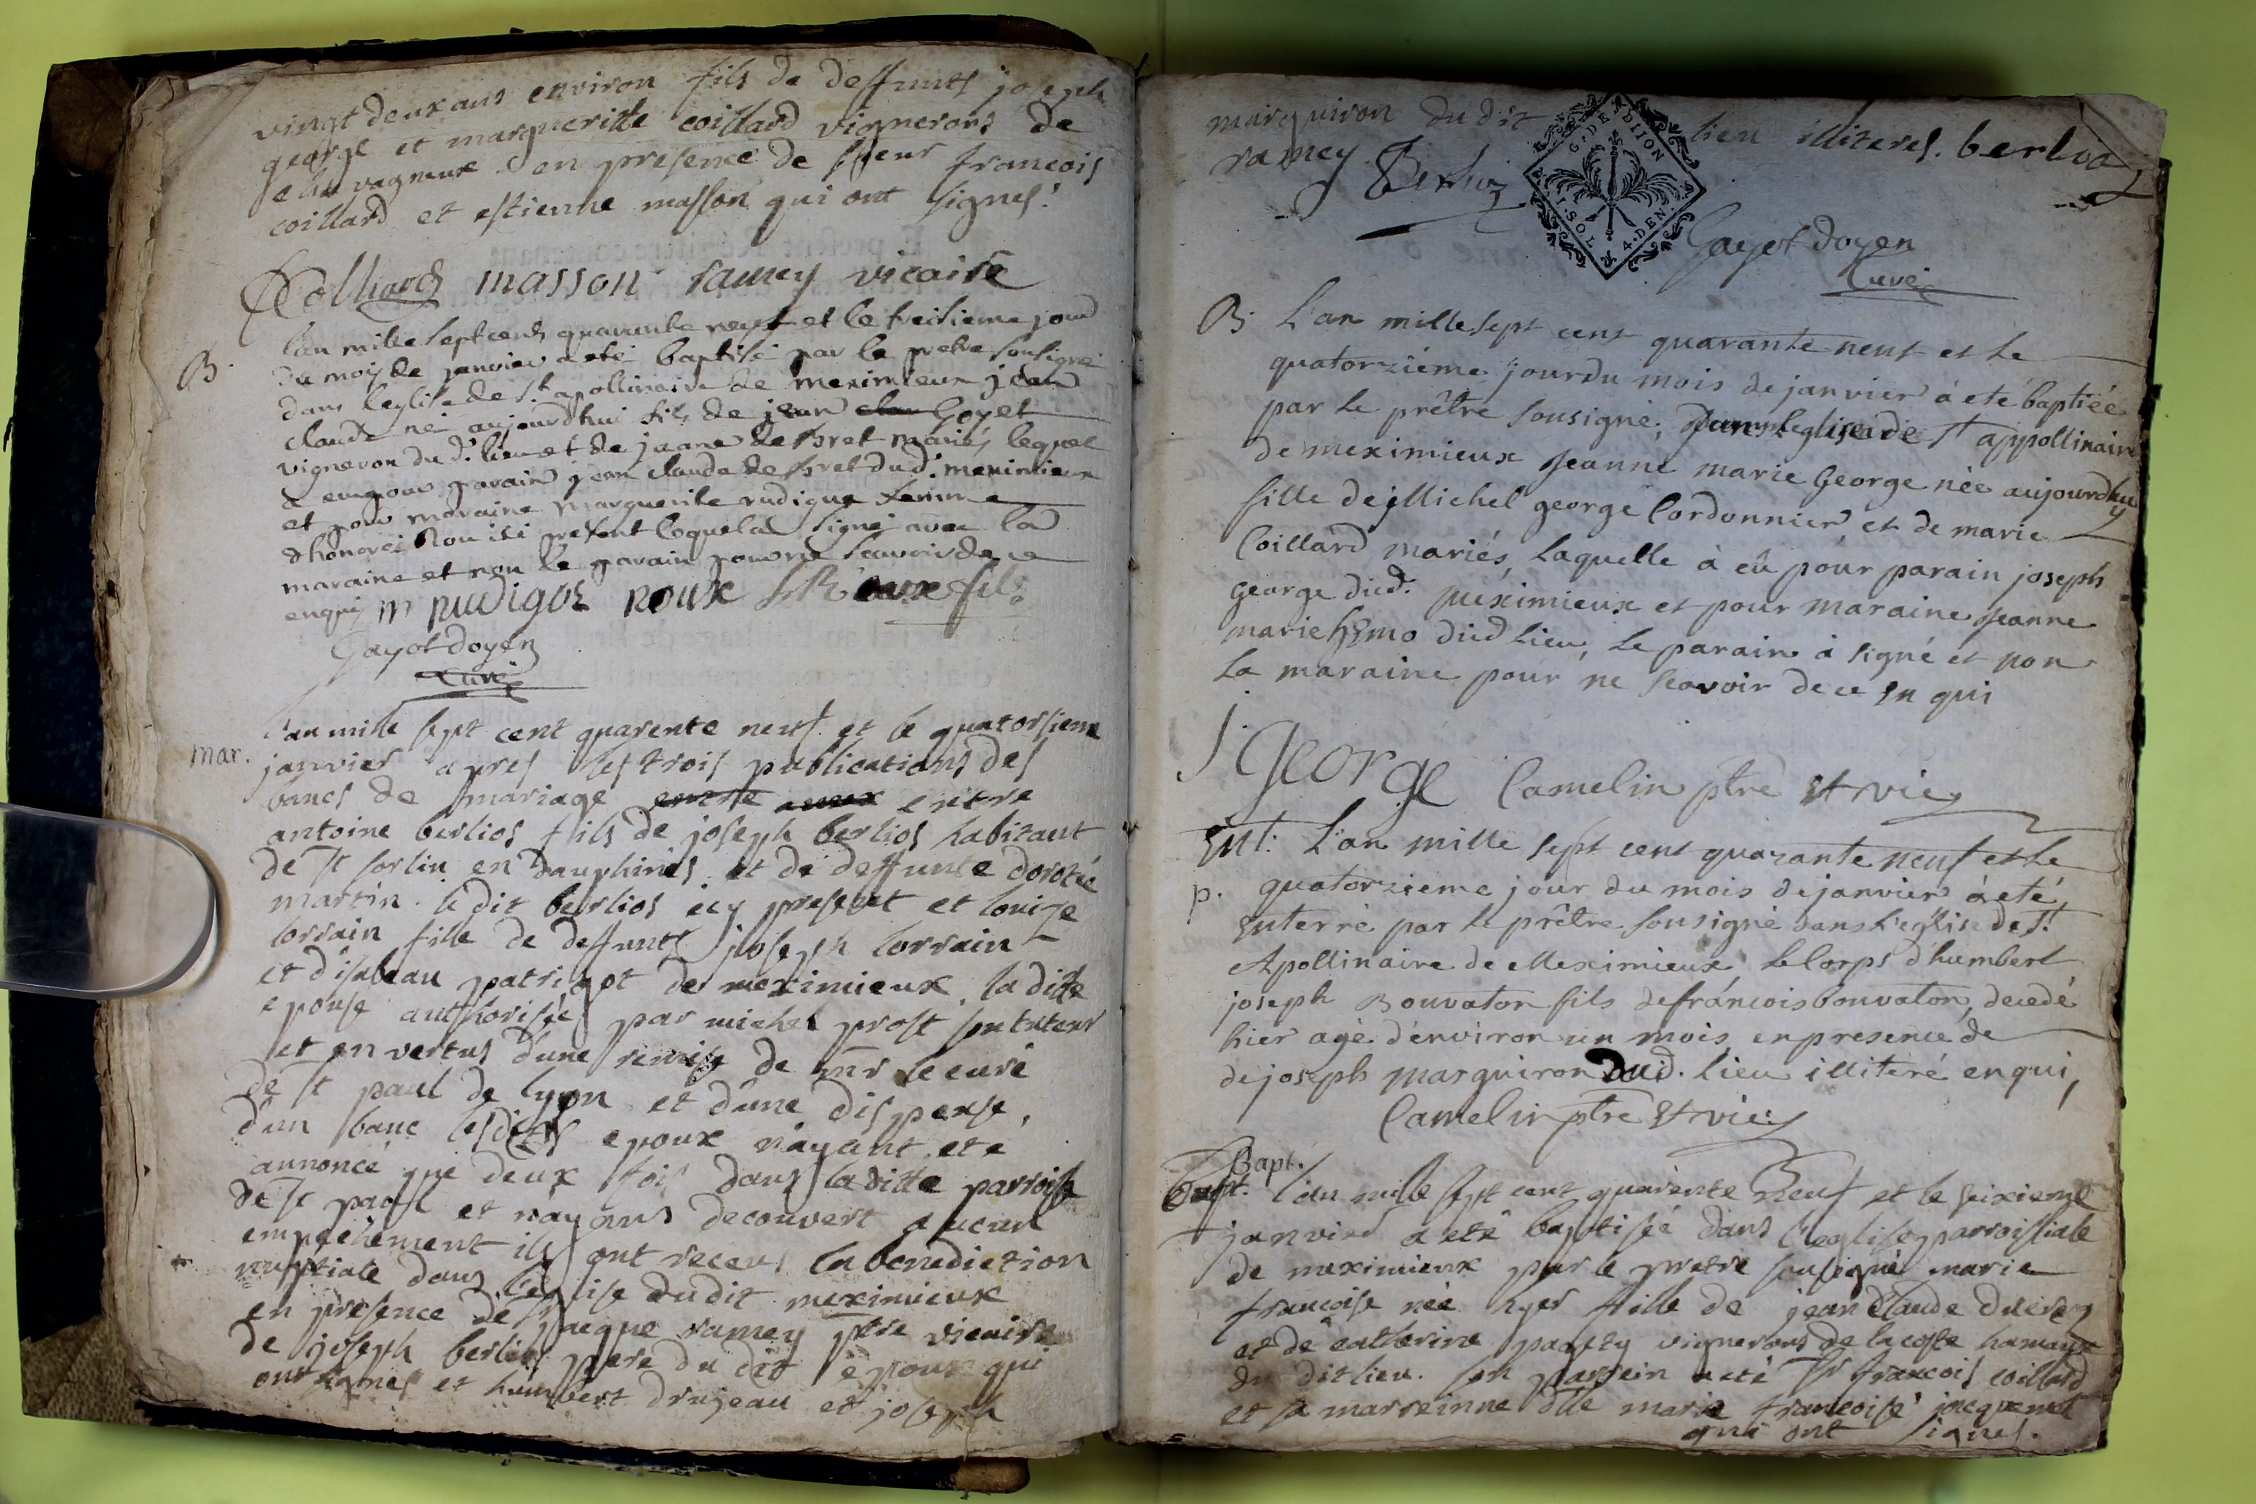 vingt deux ans environ fils de deffunts joseph
george et margueritte coillard vignerons de
vagneux en presence de sieur francois
coillard et estienne masson qui ont signes.
Colliard masson ramey vicaire
B. L'an mille sept cents quarante neuf et le treisieme jour
du mois de janvier a eté baptisé par le pretre sousigné
dans leglise de St apollinaire de meximieux jean
claude né aujourdhui fils de jean Goyet
vigneron du d. lieu et de jeanne mariés lequel
a eu pour parain jean claude dud. meximieux
et pour maraine marguerite rudigue femme
dhonoré Rou ici present lequel a signé avec la
maraine et non le parain pour ne scavoir de ce
enquis m rudigos roux Roux fils
Gayot doyen
curé
mar. L'an mille sept cent quarente neuf et le quatorsieme
janvier apres les trois publications des
bancs de mariage entre
antoine berlios fils de joseph berlios habitant
de st sorlin en dauphines et de deffunte dorotée
martin. le dit berlios icy present et louise
lorrain fille de deffunts joseph lorrain
et disabeau patriqot de meximieux, la ditte
epouse authorisée par michel prost son tuteur
et en vertus d'une remise de mr le curé
de st paul de lyon et d'une dispense,
d'un banc lesdits epoux n'ayant eté
annoncé que deux fois dans laditte parroisse
de st paul et n'ayans decouvert aucun
empechement ils ont receus la benediction
nuptiale dans l'eglise dudit meximieux
en presence de jacque ramey ptre vicaire
de joseph berlios pere du dit epoux qui
ont signes et humbert drujeau et joseph
marquiron du dit lieu illiteres. berlioz
ramey Berlioz
G. DE DIION
1 SOL 4. DEN.
Gayot doyen
Curé
B. L'an mille sept cent quarante neuf et le
quatorziéme jour du mois de janvier à eté baptiée
par le prêtre sousigné, dans leglise de st appollinaire
de meximieux jeanne marie George née aujourdhuy
fille de Michel george Cordonnier et de marie
Coillard mariés, laquelle à eû pour parain joseph
George dud. meximieux et pour maraine jeanne
marie hemo dud lieu, le parain à signé et non
la maraine pour ne scavoir de ce en qui
J. George Camelin ptre et vic
Ent. L'an mille sept cent quarante neuf et le
p. quatorziéme jour du mois de janvier à eté
enterré par le prêtre sousigné dans leglise de St.
Apollinaire de Meximieux le Corps d'humbert
joseph Bouvaton fils de francois bouvaton, decedé
hier agé d'environ un mois en presence de
de joseph marguiron dud. lieu illiteré enqui,
Camelin ptre et vic
Bapt.
Bapt. L'an mille sept cent quarente neuf et le seixieme
janvier a eté baptisée dans l'eglise parroissiale
de meximieux par le pretre sousigné marie
francoise née hyer fille de jean Claude
et de catherine vignerons de la coste hamaux
du dit lieu. son parrein a eté Sr francois coillard
et sa marreinne dlle marie francoise jacquemet
qui ont signes.